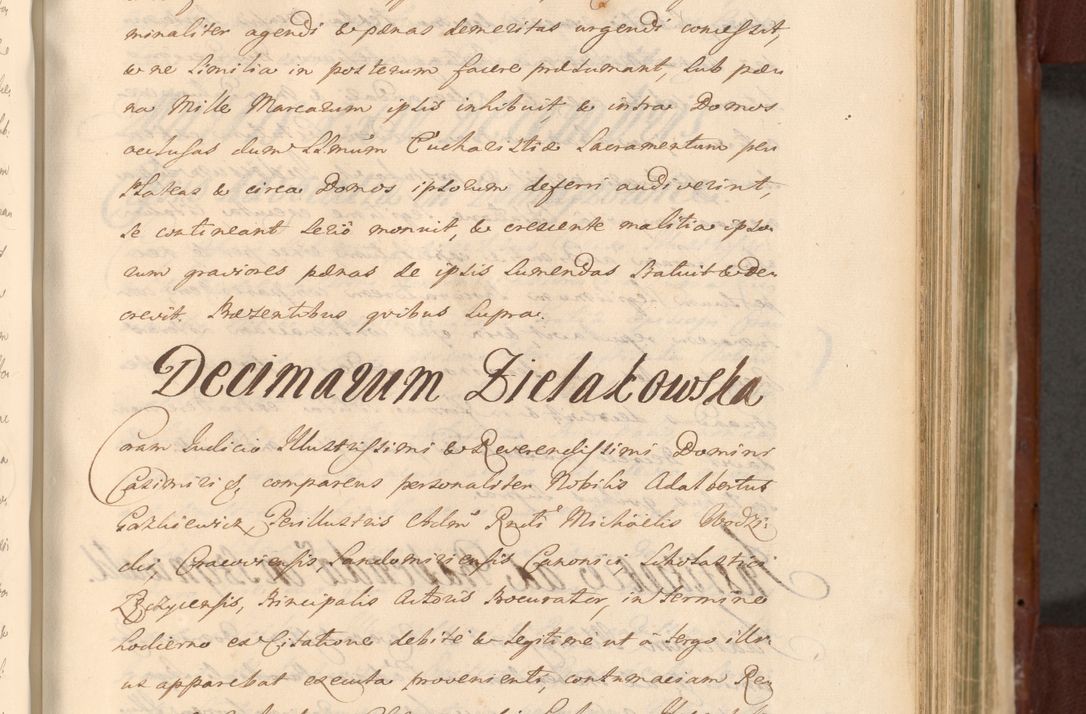 minaliter agendi & pænas demeritas urgendi concessit,
& ne similia in posterum facere præsumant, sub pæ-
na Mille Marcarum ipsis inhibuit, & intra Domos
occlusas dum SSmum Eucharistiæ Sacramentum per
Plateas & circa Domos ipsorum deferri audiverint,
se contineant serio monuit, & crescente malitia ipso-
rum graviores pænas de ipsis sumendas statuit & de-
crevit. Præsentibus quibus supra.
Decimarum Zielakowska
Coram Judicio Illustrissimi & Reverendissimi Domini
Casimiri &, comparens personaliter Nobilis Adalbertus
Perillustris Adm Rndi Michaelis Wodzi-
cki, Cracoviensis, Sandomiriensis Canonici, Scholastici
Principalis Actoris Procurator, in termino
hodierno ex Citatione debite & legitime ut a tergo illi-
us apparebat executa provenienti, contumaciam Re-